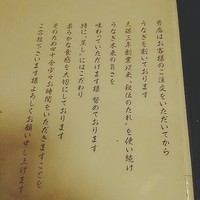 当店はお客様のご注文をいただいてから
うなぎを割いております
大正三年創業以来、"秘伝のたれ"を使い続け
うなぎ本来の旨さを
味わっていただけます様 努めております
特に"蒸し"にはこだわり
柔らかな食感を大切にしております
そのため四十分少々お時間をいただきますことを
ご容赦下さいます様よろしくお願い申し上げます